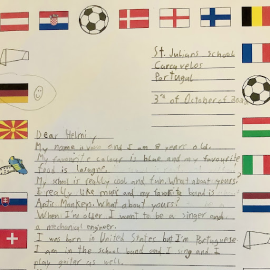 St. Julians School
Carcavelos
Portugal
3rd of October of
Dear Helmi,
My name and I am 8 years old.
My favourite colour is blue and my favourite
food is lasagne.
My school is really cool and fun. What about yours?
I really like music and my favorite band is
Artic Monkeys. What about yours?
When I'm older I want to be a singer and
a mechanical engineer.
I was born in United States but I'm Portuguese
I am in the school band and I sing and I
play guitar as well.